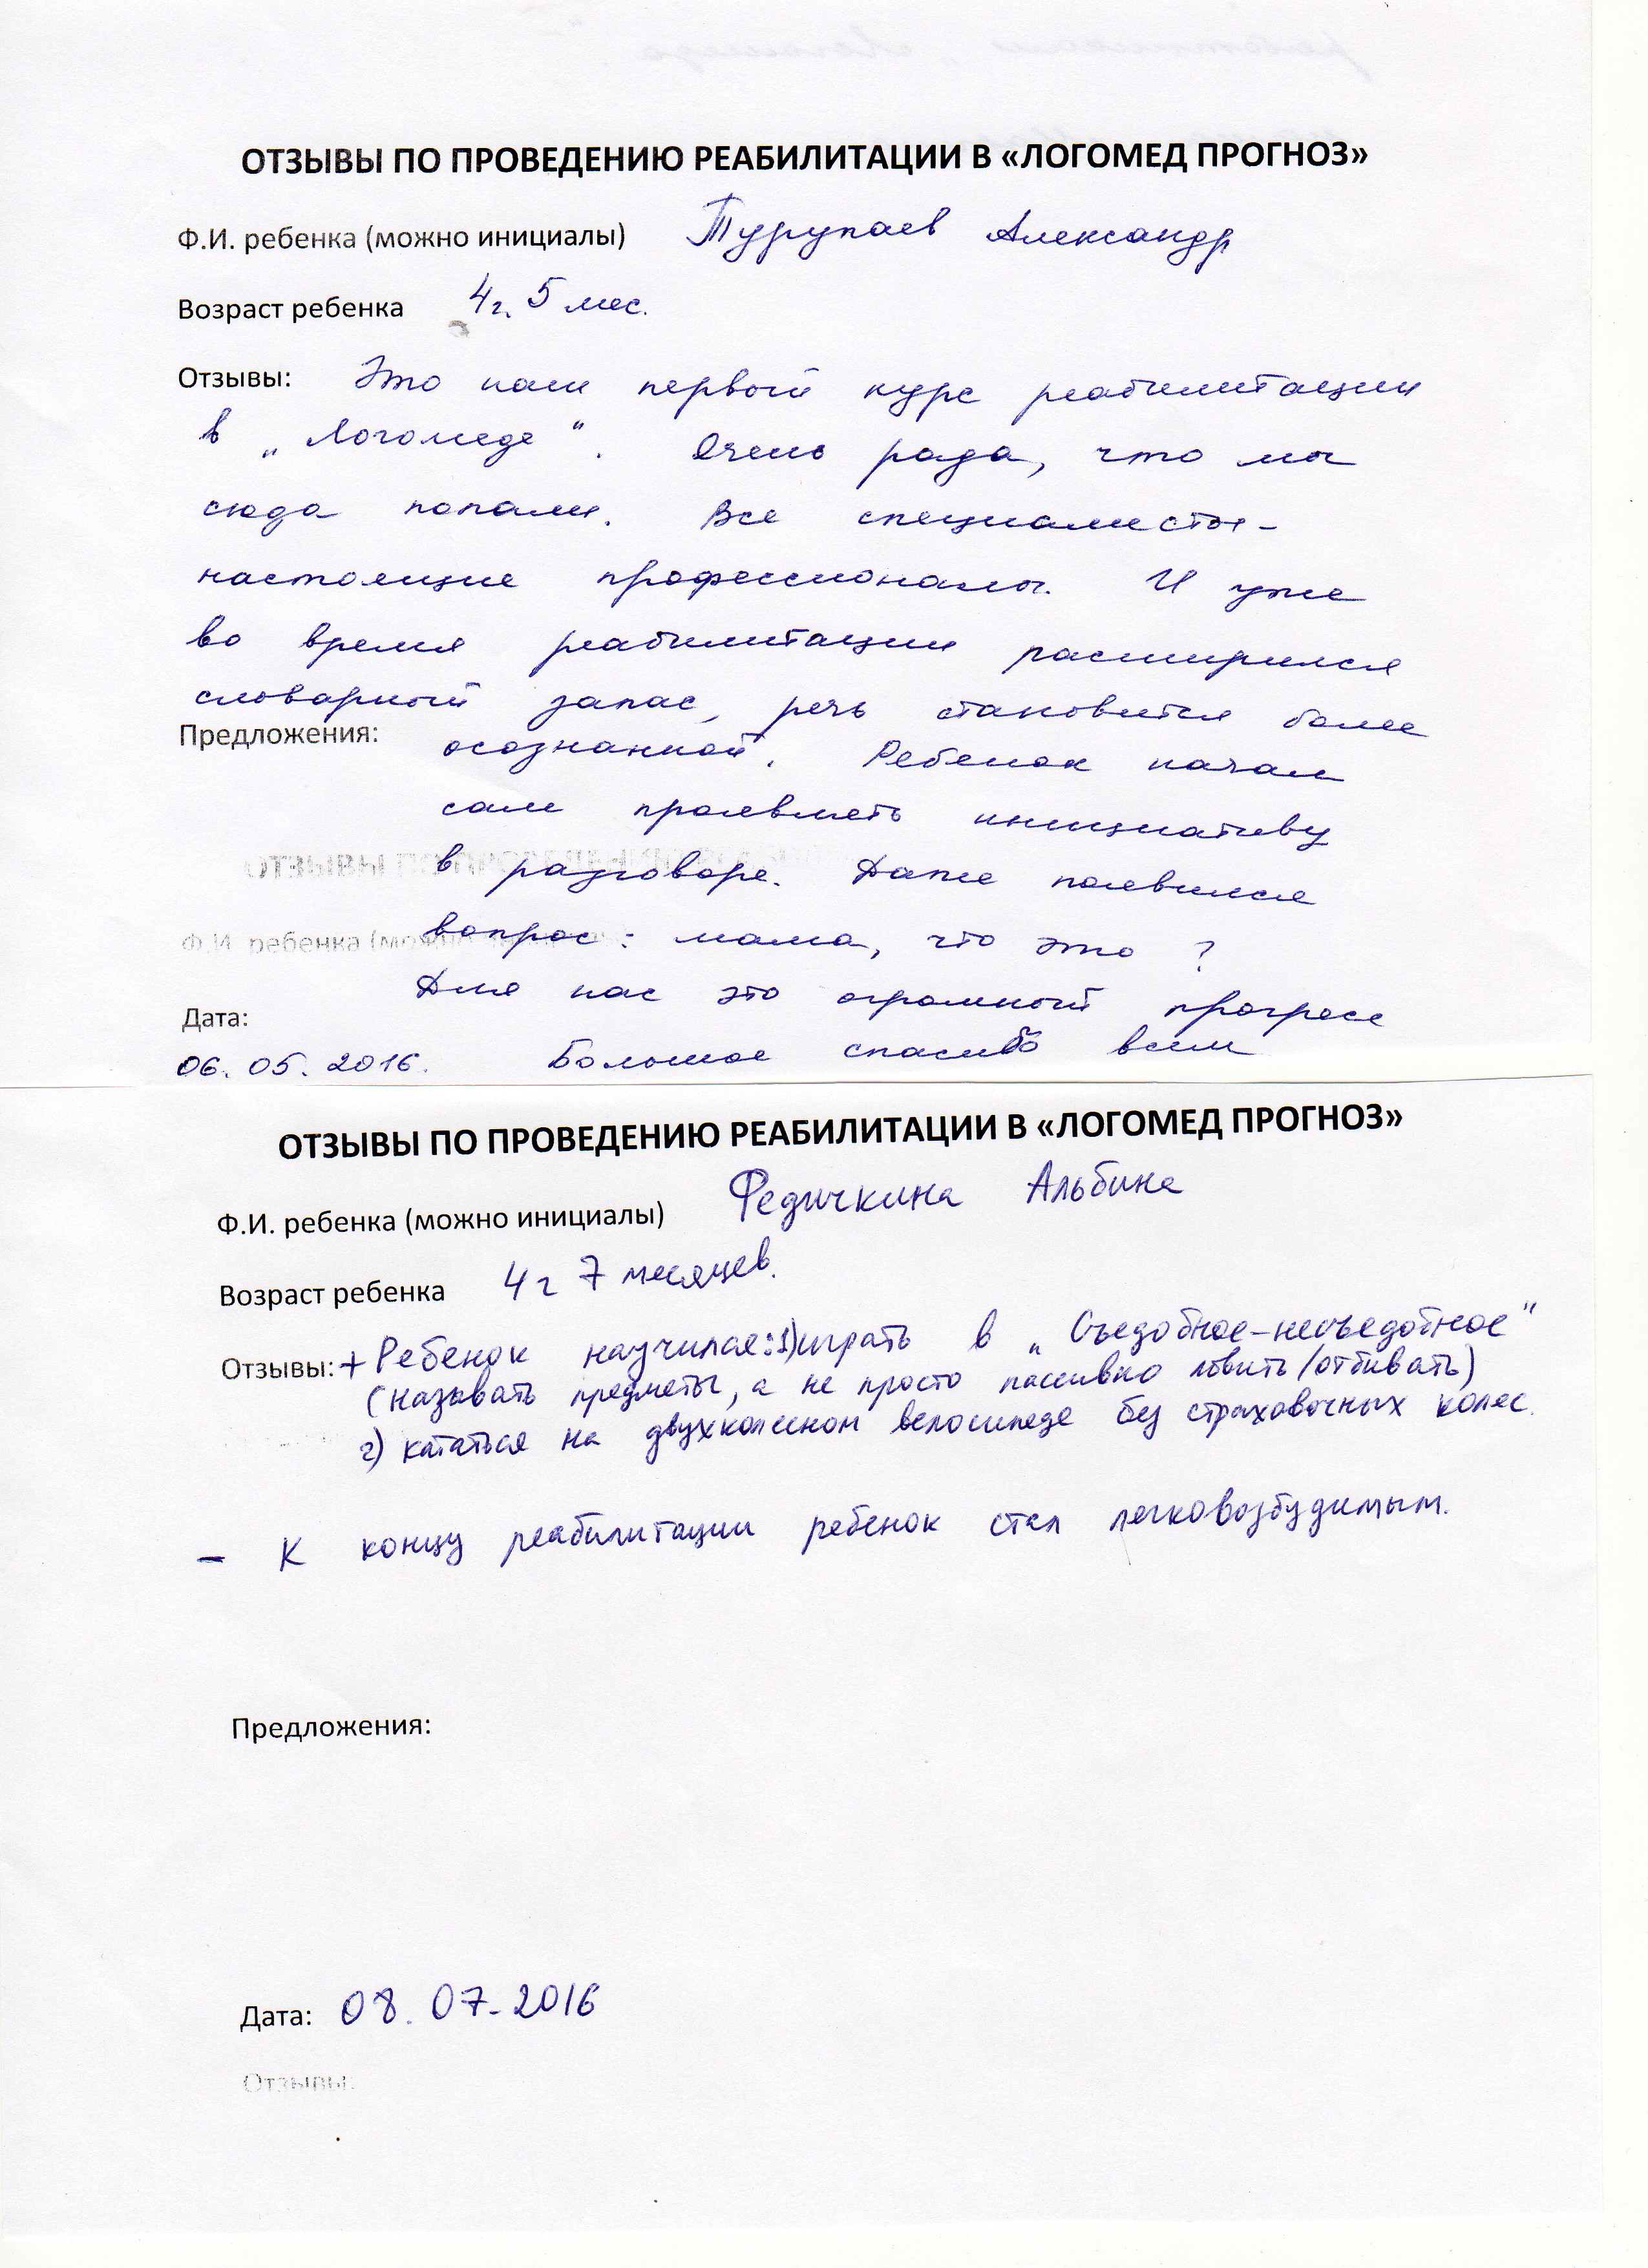 ОТЗЫВЫ ПО ПРОВЕДЕНИЮ РЕАБИЛИТАЦИИ В «ЛОГОМЕД ПРОГНОЗ»
Ф.И. ребенка (можно инициалы) Турупаев Александр
Возраст ребенка 4г. 5 мес.
Отзывы: Это наш первый курс реабилитации
в „Логомеде“. Очень рада, что мы
сюда попали. Все специалисты -
настоящие профессионалы. И уже
во время реабилитации расширился
словарный запас, речь становится более
Предложения: осознанной. Ребенок начал
сам проявлять инициативу
ОТЗЫВЫ ПО
в разговоре. Даже появился
Ф.И. ребенка (можно
вопрос: мама, что это ?
Для нас это огромный прогресс
Дата:
06. 05. 2016. Большое спасибо всем
ОТЗЫВЫ ПО ПРОВЕДЕНИЮ РЕАБИЛИТАЦИИ В «ЛОГОМЕД ПРОГНОЗ»
Ф.И. ребенка (можно инициалы) Федичкина Альбина
Возраст ребенка 4 г 7 месяцев.
Отзывы: + Ребенок научился: 1) играть в „Съедобное-несъедобное“
(называть предметы, а не просто пассивно ловить/отбивать)
2) кататься на двухколесном велосипеде без страховочных колес.
– К концу реабилитации ребенок стал легковозбудимым.
Предложения:
Дата: 08. 07. 2016
Отзывы: